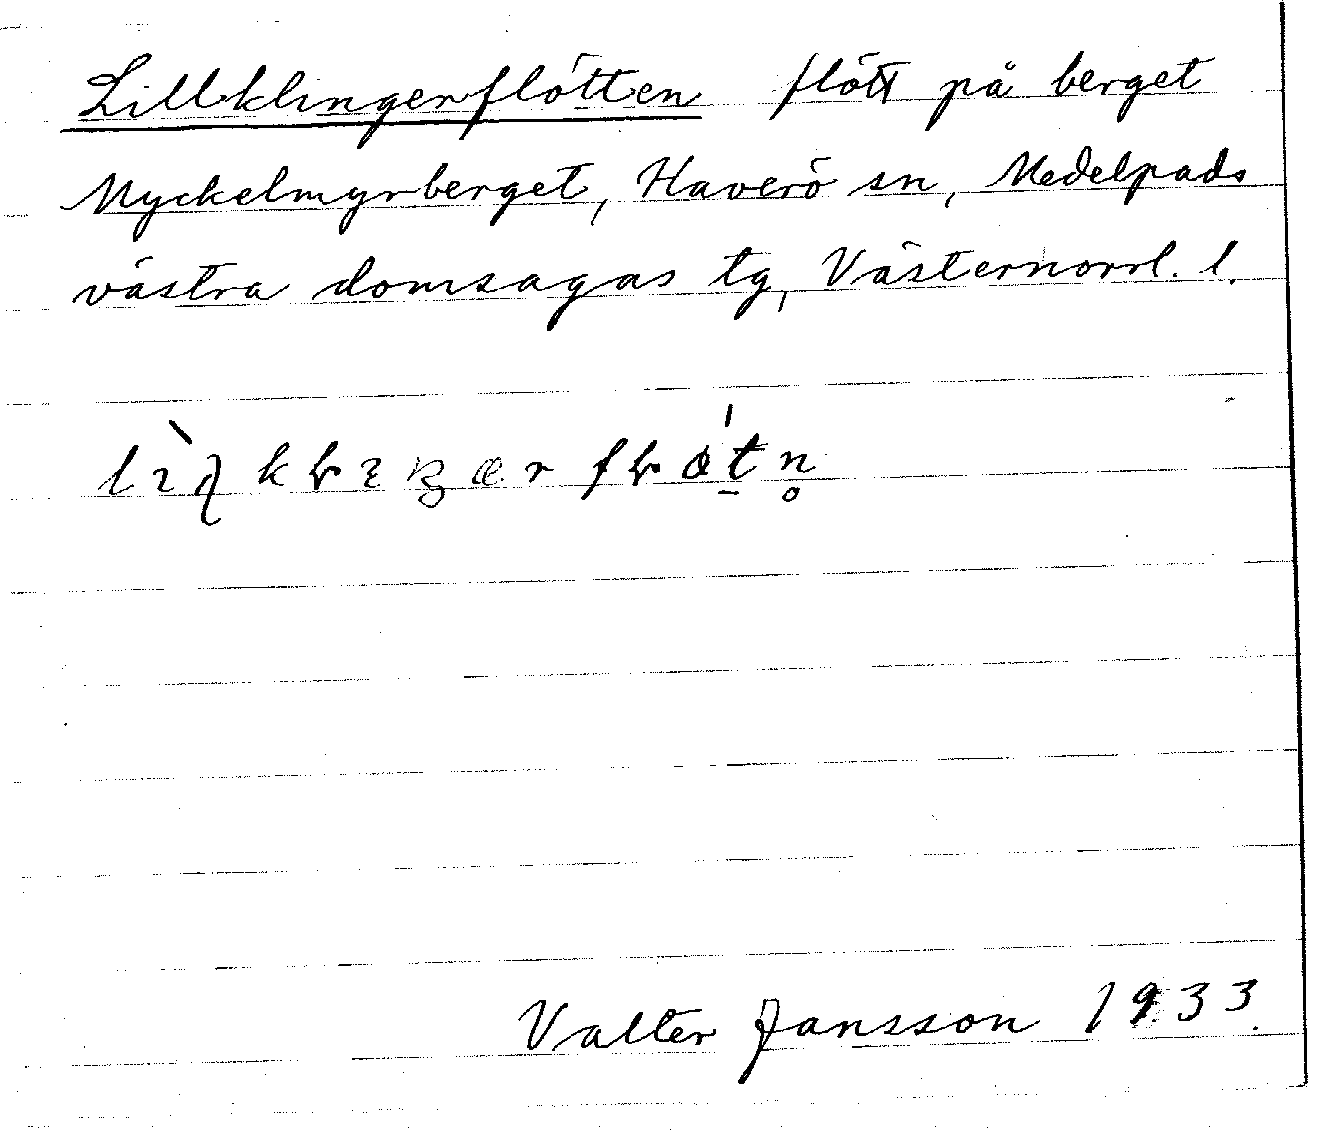 Lillklingerflötten flött på berget
Myckelmyrberget, Haverö sn, Medelpads
västra domsagas tg, Västernorrl. l.
Valter Jansson 1933.